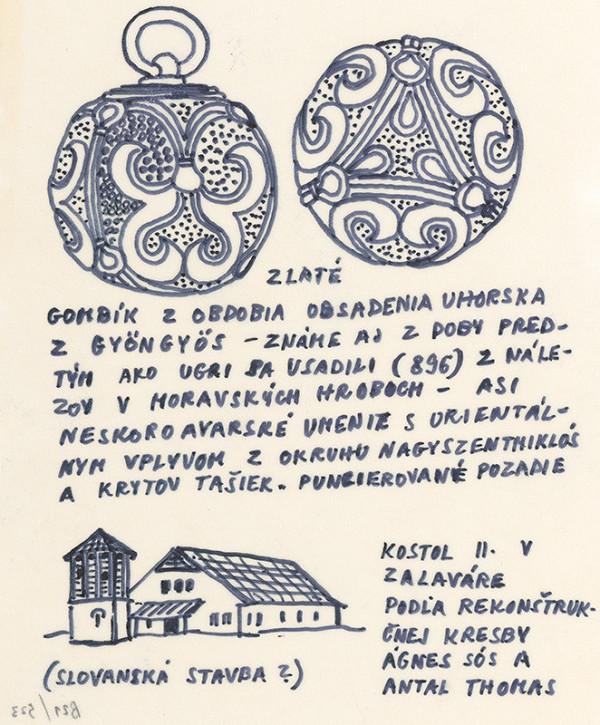 ZLATÉ
GOMBÍK Z OBDOBIA OBSADENIA UHORSKA
Z GYÖNGYÖS – ZNÁME AJ Z DOBY PRED-
TÝM AKO UGRI SA USADILI (896) Z NÁLE-
ZOV V MORAVSKÝCH HROBOCH – ASI
NESKORO AVARSKÉ UMENIE S ORIENTÁL-
NYM VPLYVOM Z OKRUHU NAGYSZENTMIKLÓS
A KRYTOV TAŠIEK. PUNCIEROVANÉ POZADIE
KOSTOL II. V
ZALAVÁRE
PODĽA REKONŠTRUK-
ČNEJ KRESBY
ÁGNES SÓS A
ANTAL THOMAS
(SLOVANSKÁ STAVBA ?)
B21/523